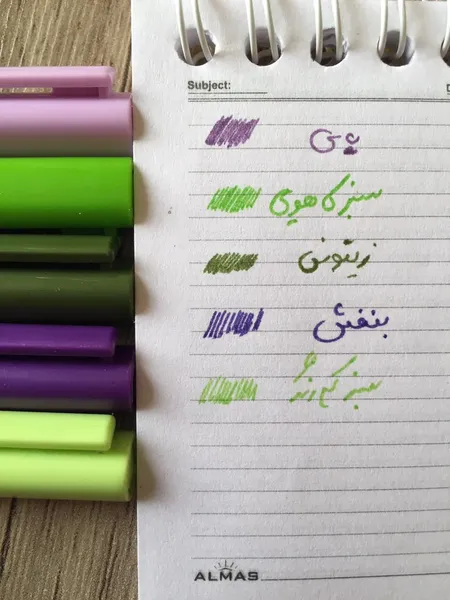 Subject:
یاسی
سبز کاهویی
زیتونی
بنفش
سبز کم رنگ
ALMAS